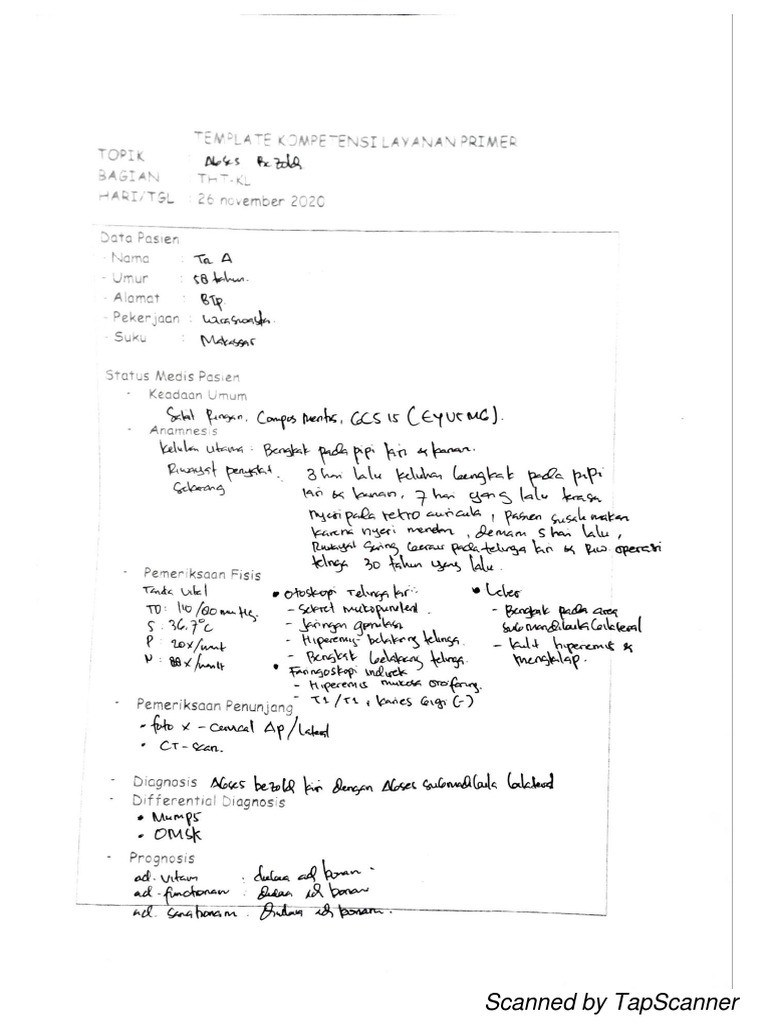 TEMPLATE KOMPETENSI LAYANAN PRIMER
TOPIK : Abses Bezold
BAGIAN : THT-KL
HARI/TGL : 26 november 2020
Data Pasien
- Nama : Tn A
- Umur : 58 tahun.
- Alamat : BTP.
- Pekerjaan : Wiraswasta.
- Suku : Makassar
Status Medis Pasien
- Keadaan Umum
Sakit Ringan, Compos Mentis, GCS 15 (E4V5M6).
- Anamnesis
Keluhan utama : Bengkak pada pipi kiri & kanan.
Riwayat penyakit Sekarang : 3 hari lalu keluhan bengkak pada pipi
kiri & kanan, 7 hari yang lalu terasa
nyeri pada retro auricula, pasien susah makan
karena nyeri menelan, demam 5 hari lalu,
Riwayat Sering berair pada telinga kiri & Riw. operasi
telinga 30 tahun yang lalu.
- Pemeriksaan Fisis
Tanda Vital
TD : 110/80 mmHg.
S : 36,7°C
P : 20x/menit
N : 88x/menit
• Otoskopi Telinga kiri :
- Sekret Mukopurulent.
- Jaringan granulasi
- Hiperemis belakang telinga.
- Bengkak belakang telinga.
• Faringoskopi indirek
- Hiperemis mukosa orofaring.
- T1/T1, karies Gigi (-)
• Leher
- Bengkak pada area
submandibula bilateral
- kulit hiperemis &
mengkilap.
- Pemeriksaan Penunjang
• foto x - cervical Ap/Lateral
• CT-scan.
- Diagnosis Abses bezold kiri dengan Abses submandibula bilateral
- Differential Diagnosis
• Mumps
• OMSK
- Prognosis
ad. vitam : dubia ad bonam.
ad. functionam : Dubia ad bonam
ad. sanationam : Dubia ad bonam.
Scanned by TapScanner